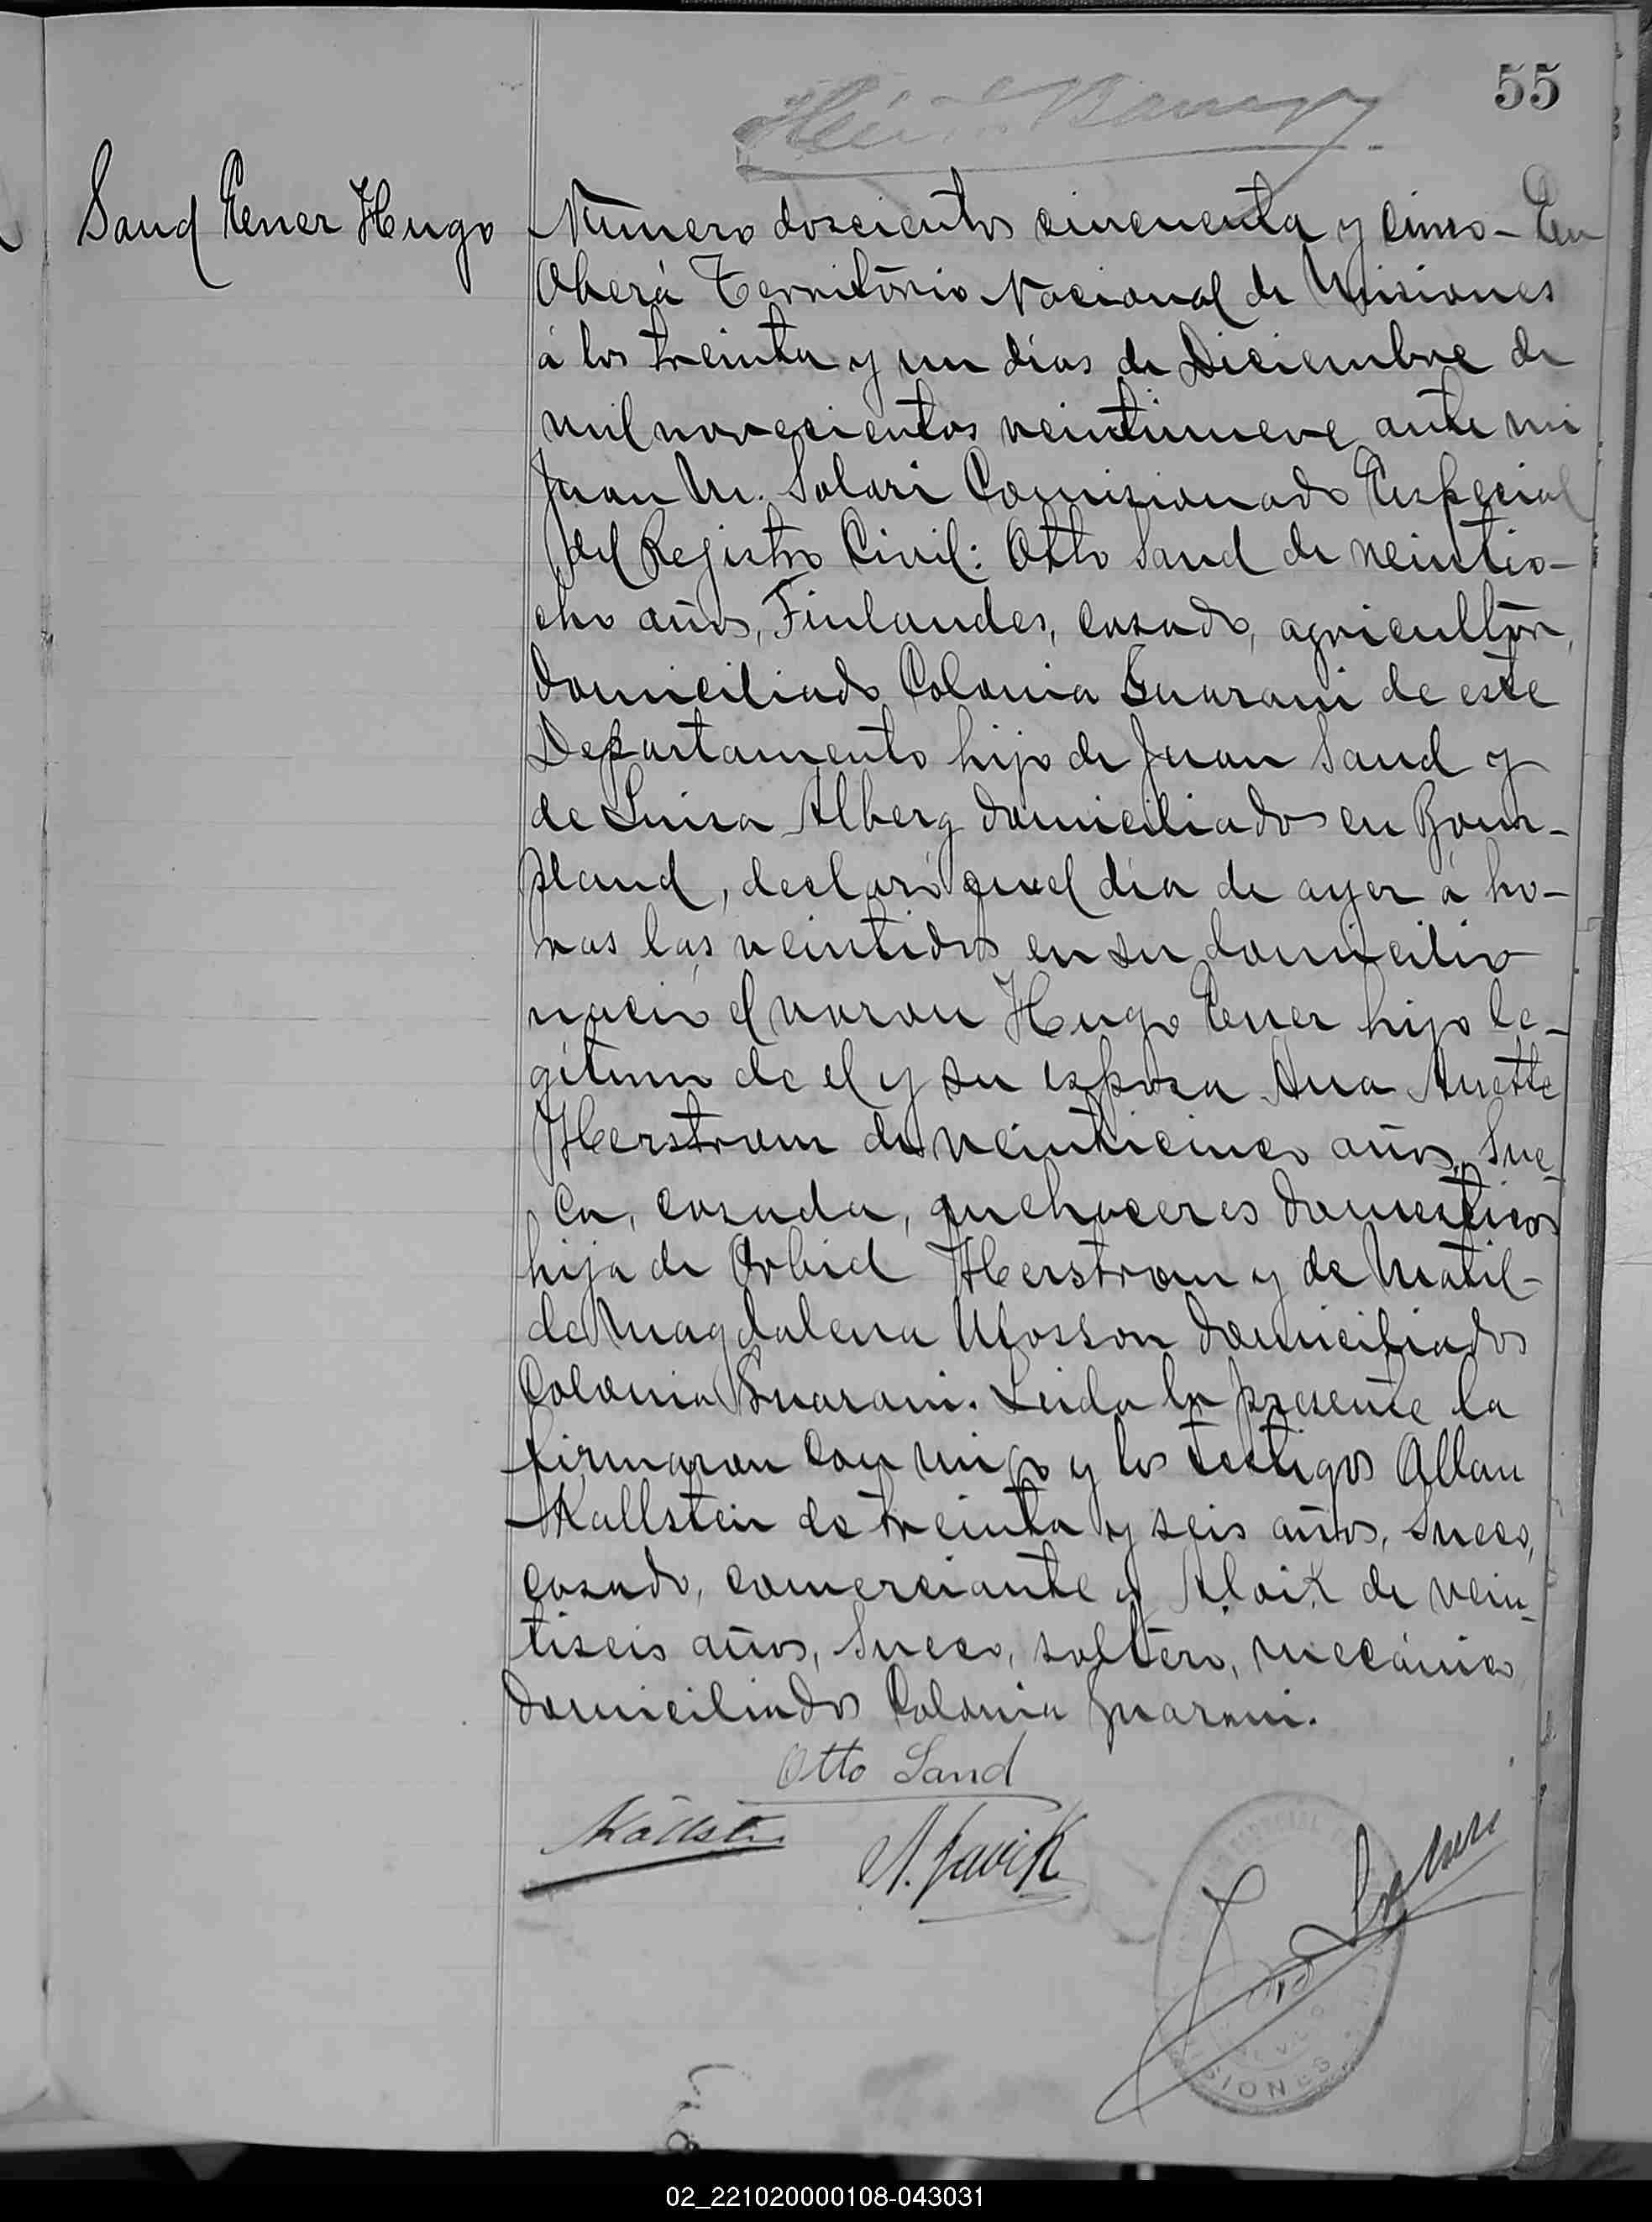 55
Sand Ener Hugo
Número doscientos cincuenta y cinco - En
Oberá Território Nacional de Misiones
á los treinta y un días de Diciembre de
mil novecientos veintinueve ante mi
Juan M. Solari Comisionado Especial
del Registro Civil: Otto Sand de veintio-
cho años, Finlandes, casado, agricultor,
domiciliado Colonia Guarani de este
Departamento hijo de Juan Sand y
de Luisa Alberg domiciliados en Bom-
pland, declaró que el día de ayer á ho-
ras las veintidos en su domicilio
nació el varon Hugo Ener hijo le-
gítimo de el y su esposa Ana Anette
Herstrom de veinticinco años, Sue-
ca, casada, quehaceres domesticos
hija de Orbid Herstrom y de Matil-
de Magdalena domiciliados
Colonia Guarani. Leida la presente la
firmaron con migo y los testigos Allan
Kallsten de treinta y seis años, Sueco,
casado, comerciante y de vein-
tiseis años, Sueco, soltero, mecánico
domiciliados Colonia Guarani.
Otto Sand
Källsten
MISIONES
02_221020000108-043031